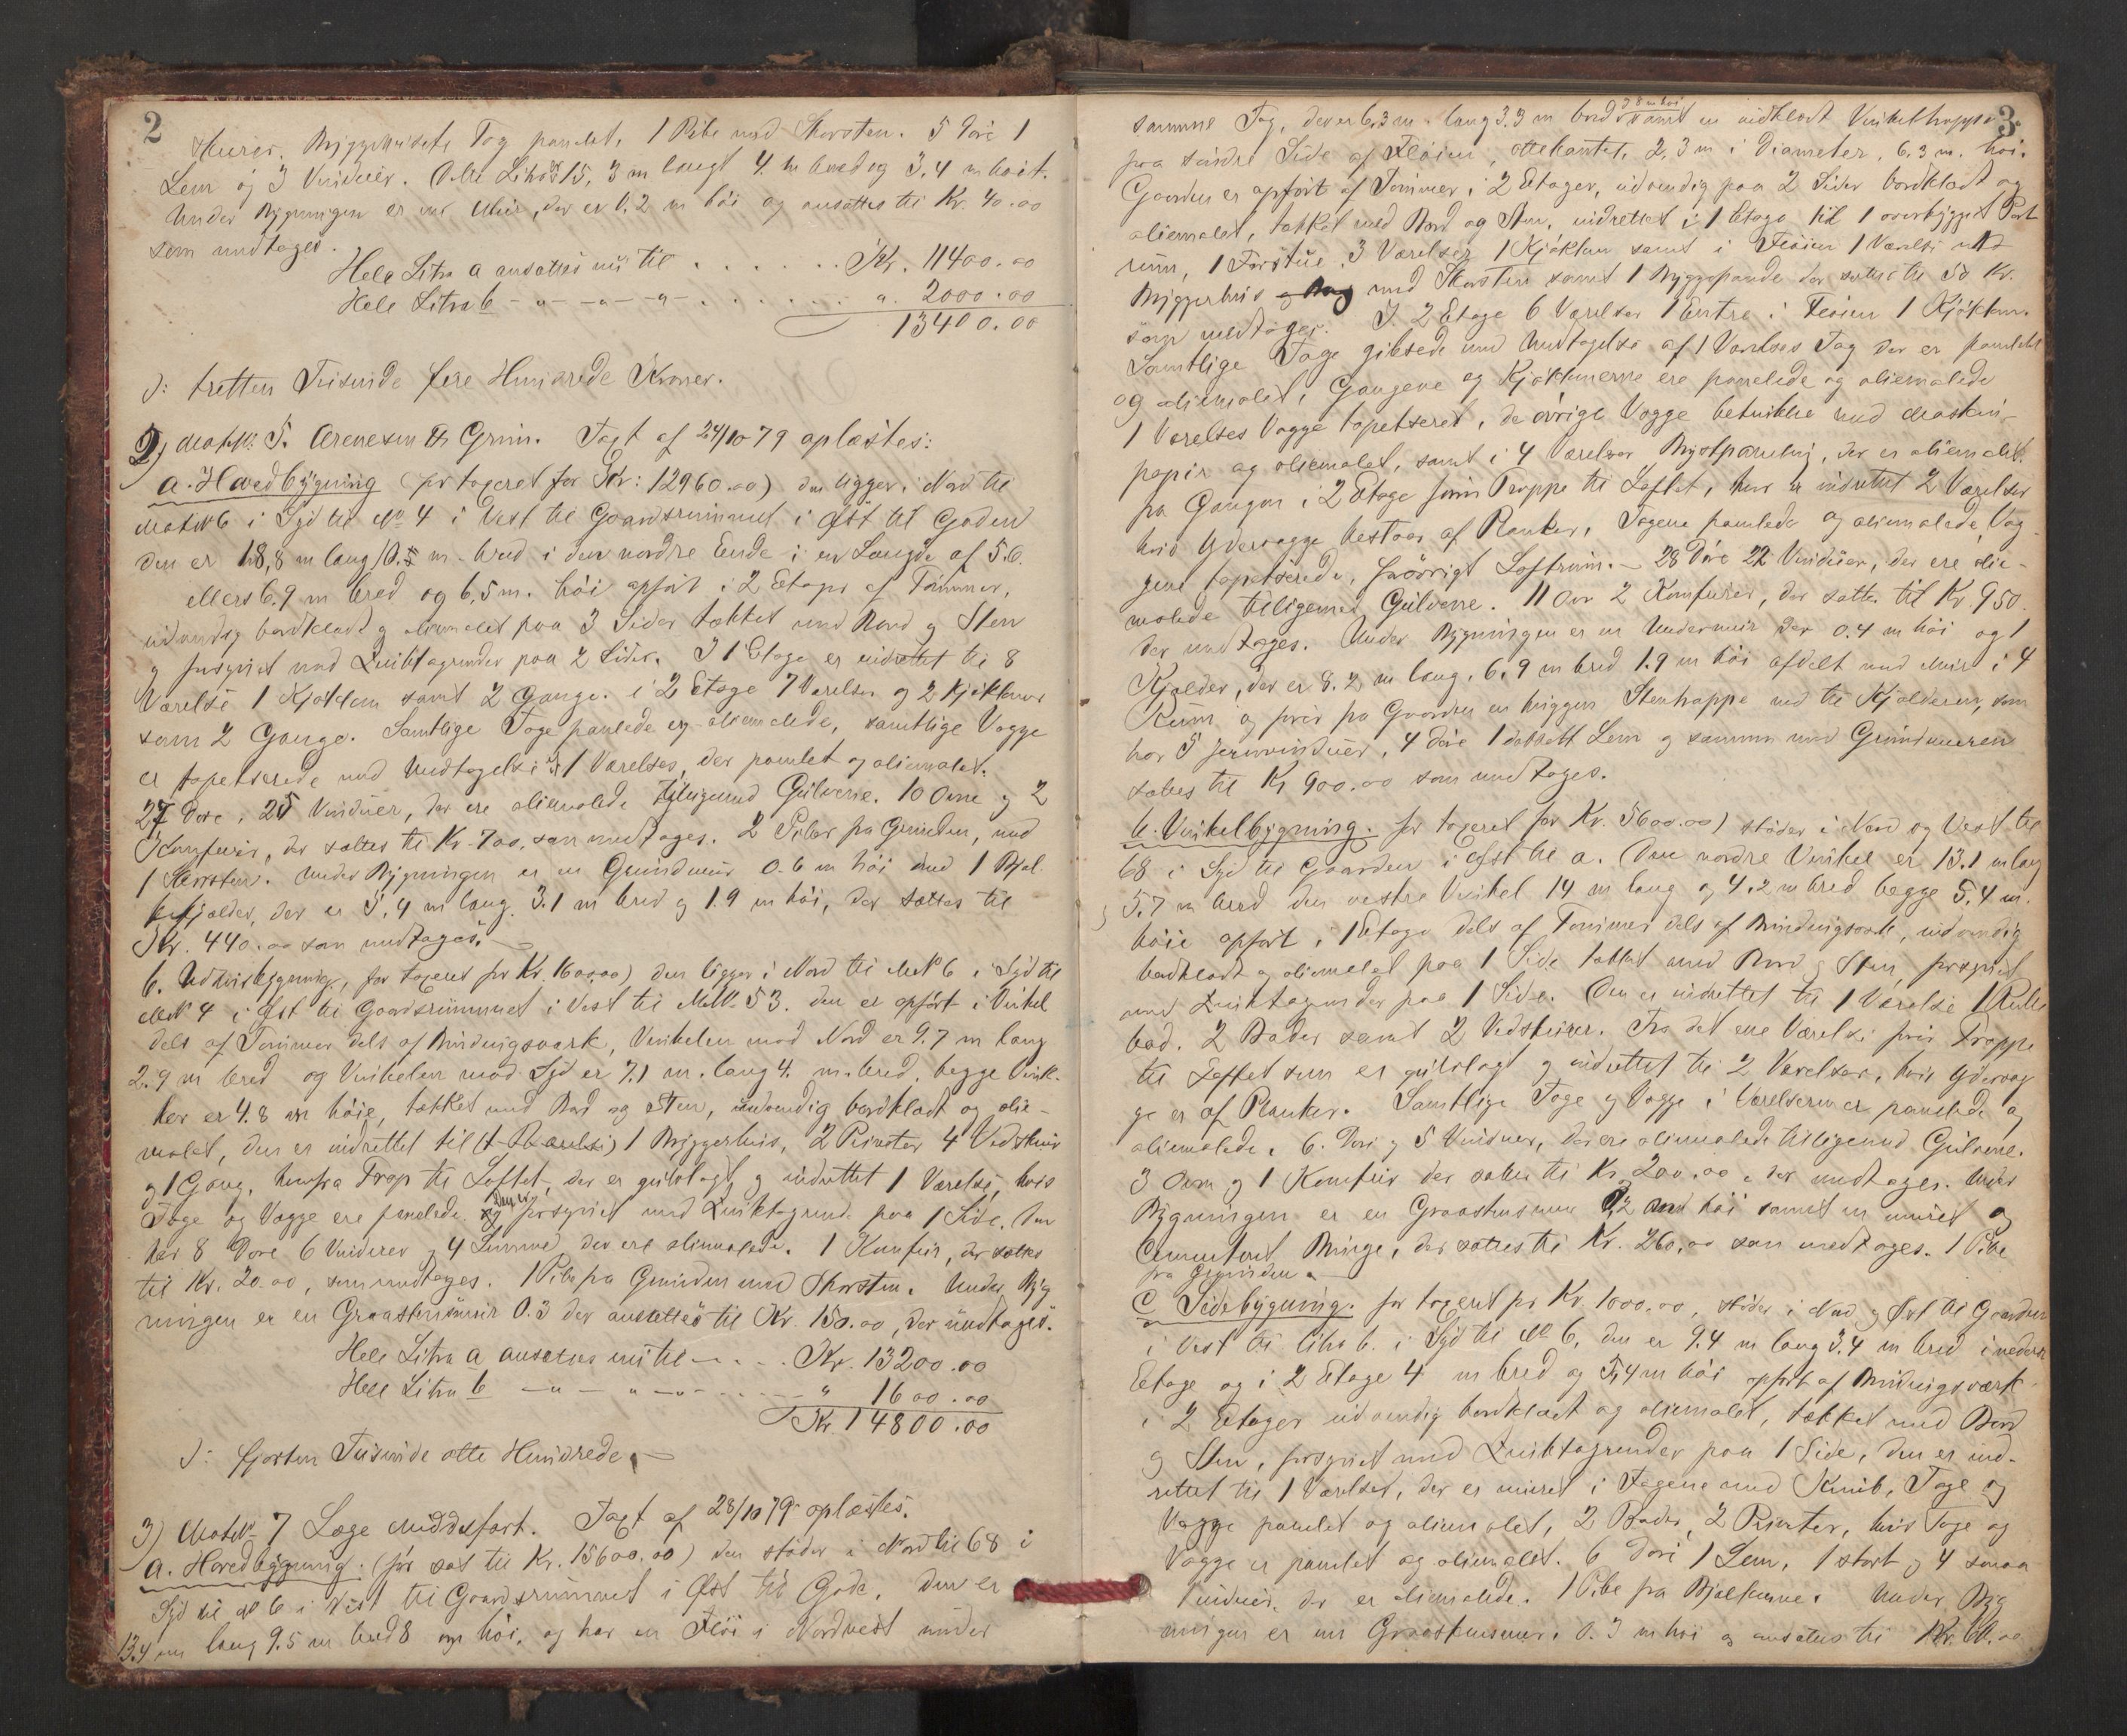 2
Murer. Bryggehusets Tag panelet, 1 Pibe med Skorsten. 5 Döre 1
Lem og 3 Vinduer. Dette Litra 15,3 m langt 4 m bred og 3,4 m höit.
Under Bygningen er en Muur, der er 0.2 m höi og ansættes til Kr. 40.00
som undtages.
Hele Litra a ansættes nu til . . . . . . Kr. 11400.00
Hele Litra b - " - " - " - . . . . . . " 2000.00
13400.00
ɔ: tretten Tusinde fire Hundrede Kroner.
2) Mat. No. 5. Arenesen Grim. Taxt af 24/10 79 oplæstes:
a. Hovedbygning (før taxeret for Kr: 12960.00) den ligger i Nord til
Mat No 6 i Syd til No 4 i Vest til Gaardsrummet i Øst til Gaden
den er 18,8 m lang 10.5 m bred i den nordre Ende i en Længde af 5.6
ellers 6.9 m bred og 6,5 m. höi opført i 2 Etager af Tømmer,
udvendig bordklædt og oliemalet paa 3 Sider tækket med Bord og Sten
og forsynet med Zinktagrender paa 2 Sider. I 1 Etage er indrettet til 8
Værelse 1 Kjøkken samt 2 Gange. i 2 Etage 7 Værelser og 2 Kjøkkener
sam 2 Gange. Samtlige Tage panlede og oliemalede, samtlige Vægge
er tapetserede med Undtagelse af 1 Værelses, der panlet og oliemalet.
27 Döre, 25 Vinduer, der ere oliemalede tilligemed Gulvene. 10 Ovne og 2
Komfurer, der sættes til Kr. 700. som undtages. 2 Piber fra Grunden, med
1 Skorsten. Under Bygningen er en Grundmur 0.6 m höi med 1 Bjel-
kekjælder, der er 5,4 m lang. 3.1 m bred og 1.9 m höi, der sættes til
Kr. 440.00 som undtages.
b. Udhusbygning, før taxeret for Kr 1600.00) den ligger i Nord til Mat No 6 i Syd til
Mat No 4 i Øst til Gaardsrummet i Vest til Mat No 53. den er opført i Vinkel
dels af Tømmer dels af Bindingsværk, Vinkelen mod Nord er 9.7 m lang
2.9 m bred og Vinkelen mod Syd er 7.1 m. lang 4. m. bred, begge Vink-
ler er 4.8 m höie, tækket med Bord og Sten, udvendig bordklædt og olie-
malet, den er indrettet til (1 Værelse) 1 Bryggerhus, 2 Privater 4 Vedskur
og 1 Gang, herfra Trap til Loftet, der er gulvlagt og indrettet 1 Værelse, hvis
Tage og Vægge ere panelede. den er forsynet med Zinktagrend. paa 1 Side. Den
har 8 Döre 6 Vinduer og 4 Lemme der ere oliemalede. 1 Komfur, der sættes
til Kr. 20.00, som undtages. 1 Pibe fra Grunden med Skorsten. Under Byg
ningen er en Graastensmur 0.3 der ansættes til Kr. 150.00, der undtages.
Hele Litra a ansættes nu til - . . . Kr. 13200.00
Hele Litra b - " - " - " - . . . . " 1600.00
Kr 14800.00
ɔ: fjorten Tusinde otte Hundrede
3) Mat No 7 Læge Middelfart. Taxt af 23/10 79 oplæstes.
a. Hovedbygning: (før sat til Kr. 15600.00) den støder i Nord til 68 i
Syd til No 6 i Vest til Gaardsrummet i Øst til Gade. den er
13.4 m lang 9.5 m bred 8 m höi, og har en Fløi i Nordvest under
3.
samme Tag, der er 6.3 m. lang 3.3 m bred samt en udklædt Vinkeltrappe
paa søndre Side af Fløien, ottekantet. 2.3 m i Diameter. 6.3 m. höi.
Gaarden er opført af Tømmer i 2 Etager, udvendig paa 2 Sider bordklædt og
oliemalet, tækket med Bord og Sten, indrettet i 1 Etage til 1 overbygget Port
rum, 1 Forstue, 3 Værelser 1 Kjökken samt i Fløien 1 Værelse med
Bryggerhus med Skorsten samt 1 Bryggepande der sættes til 50 Kr.
som undtages. I 2 Etage 6 Værelser 1 Entre i Fløien 1 Kjökken.
Samtlige Tage gibsede med Undtagelse af 1 Værelses Tag der er panelet
og oliemalet, Gangene og Kjøkkenerne ere panelede og oliemalede
1 Værelses Vægge tapetseret, de övrige Vægge betrukne med Maskin-
papir og oliemalet, samt i 4 Værelser Brystpaneling, der er oliemalet.
fra Gangen i 2 Etage förer Trappe til Loftet, hvor er indrettet 2 Værelser
hvis Ydervægge bestaar af Planker. Tagene panlede og oliemalede, Væg-
gene tapetserede, forövrigt Loftrum. - 28 Döre 22 Vinduer, der ere olie-
malede tilligemed Gulvene. 11 Ovne 2 Komfurer, der sættes til Kr. 950.
der undtages. Under Bygningen er en Undermur der 0.4 m höi og 1
Kjælder, der er 8.2 m lang, 6.9 m bred 1.9 m höi afdelt med Mure i 4
Rum og fører fra Gaarden en huggen Stentrappe ned til Kjælderen, som
har 5 Jernvinduer, 4 Döre 1 dobbelt Lem og sammen med Grundmuren
sættes til Kr 900.00 som undtages.
b. Vinkelbygning. før taxeret for Kr. 5600.00) støder i Nord og Vest til
68 i Syd til Gaarden i Øst til a. Den nordre Vinkel er 13.1 m lang
og 5.7 m bred den vestre Vinkel 14 m lang og 4,2 m bred begge 5.4 m.
höie opført i 1 Etage dels af Tømmer dels af Bindingsværk, udvendig
bordklædt og oliemalet paa 1 Side tækket med Bord og Sten forsynet
med Zinktagrender paa 1 Side. Den er indrettet til 1 Værelse 1 Rulle
bod. 2 Boder samt 2 Vedskure. Fra det ene Værelse förer Trappe
til Loftet som er gulvlagt og indrettet til 2 Værelser, hvis Ydervæg-
ge er af Planker. Samtlige Tage og Vægge i Værelserne er panelede og
oliemalede. 6. Döre og 5 Vinduer, der ere oliemalede tilligemed Gulvene.
3 Ovne og 1 Komfur der sættes til Kr. 200.00, der undtages. Under
Bygningen er en Graastensmur 0,2 m höi samt en muret og
Cementeret Binge, der sættes til Kr. 260.00 som undtages. 1 Pibe
fra Grunden
c Sidebygning. før taxeret for Kr. 1000.00, støder i Nord og Øst til Gaarden
i Vest til litra b. i Syd til No 6, den er 9.4 m lang 3.4 m bred i nederste
Etage og i 2 Etage 4 m bred og 5,4 m höi opført af Bindingsværk
i 2 Etager udvendig bordklædt og oliemalet, tækket med Bord
og Sten, forsynet med Zinktagrender paa 1 Side, den er ind-
rettet til 1 Værelset, der er muret i Fagene med Knub, Tage og
Vægge panelet og oliemalet, 2 Boder, 2 Privater, hvis Tage og
Vægge er panelet og oliemalet. 6 Döre 1 Lem, 1 stort og 4 smaa
Vinduer, der er oliemalede. 1 Pibe fra Bjælkerne. Under Byg
ningen er en Graastensmur. 0.3 m höi og ansættes til Kr. 60.00